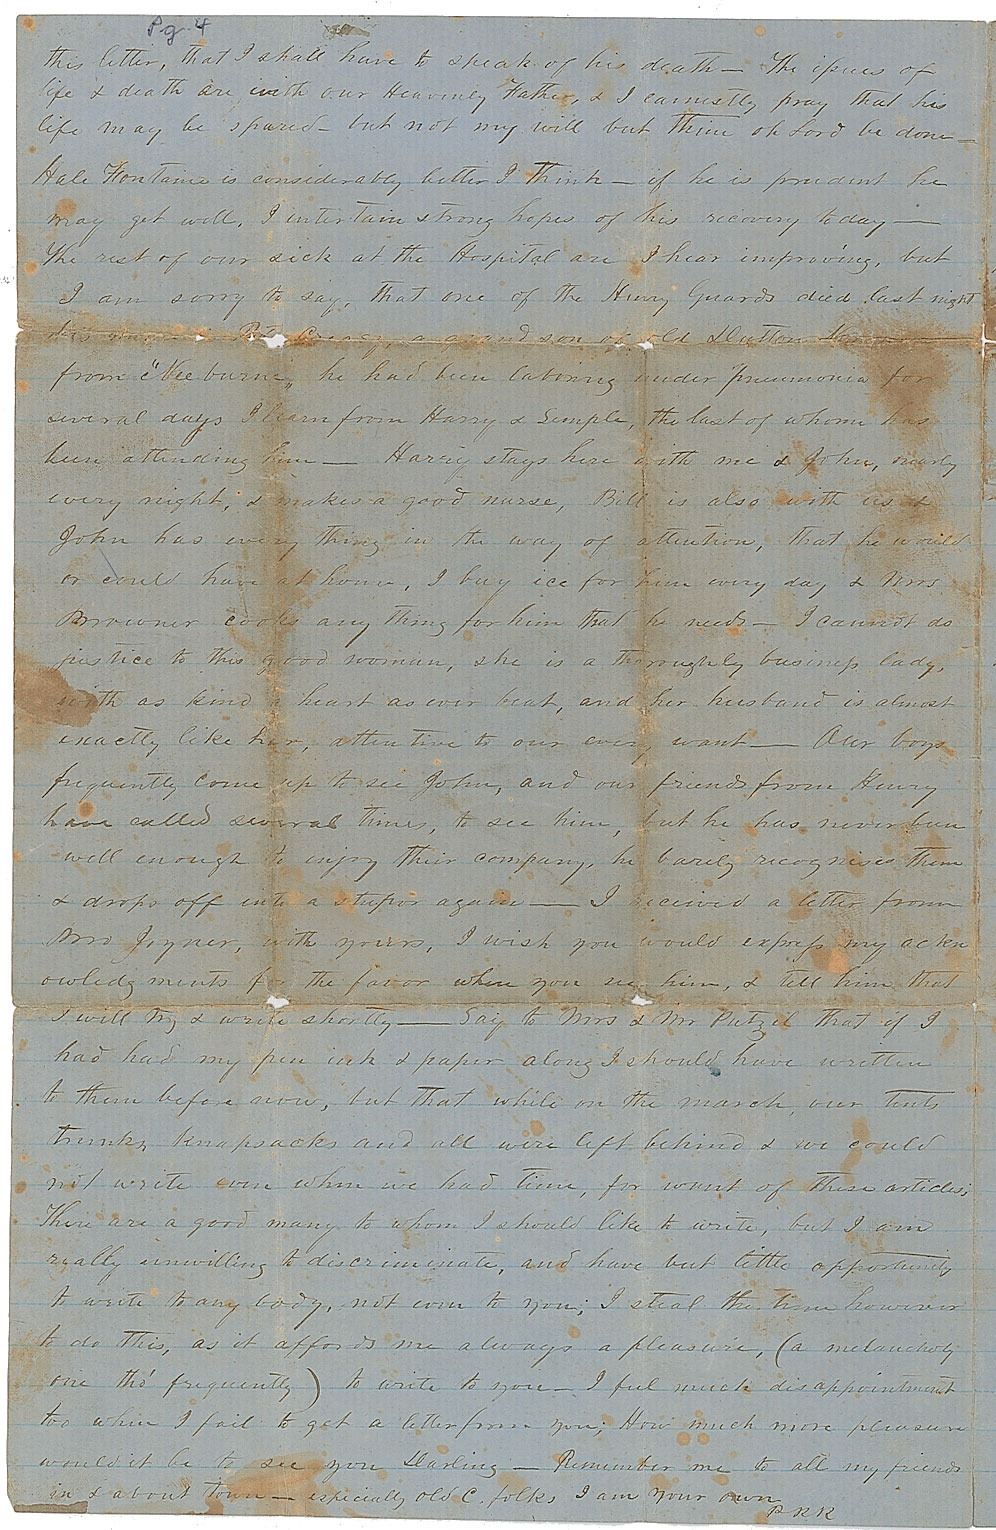 Pg. 4
this letter, that I shall have to speak of his death — The issues of
life & death are with our Heavenly Father, & I earnestly pray that his
life may be spared — but not my will but Thine oh Lord be done —
Hale Fontaine is considerably better I think — if he is prudent he
may get well, I intertain strong hopes of his recovery to day —
The rest of our sick at the Hospital are I hear improving, but
I am sorry to say, that one of the Henry Guards died last night
his name is a grand son of old Dutton
from "Leeburne" he had been laboring under pneumonia for
several days I learn from Harry & Semple, the last of whom has
been attending him — Harry stays here with me & John, nearly
every night, & makes a good nurse, Bill is also with us &
John has every thing in the way of attention, that he would
or could have at home, I buy ice for him every day & Mrs
Browner cooks any thing for him that he needs — I cannot do
justice to this good woman, she is a thoroughly business lady,
with as kind a heart as ever beat, and her husband is almost
exactly like her, attentive to our every want — Our boys
frequently come up to see John, and our friends from Henry
have called several times, to see him, but he has never been
well enough to injoy their company, he barely recognises them
& drops off into a stupor again — I received a letter from
Mrs Joyner, with yours, I wish you would express my ackn
owledgments for the favor when you see him, & tell him that
I will try & write shortly — Say to Mrs & Mr Putzel that if I
had had my pen ink & paper along I should have written
to them before now, but that while on the march, our tents
trunks, knapsacks and all were left behind & we could
not write even when we had time, for want of these articles;
There are a good many to whom I should like to write, but I am
really unwilling to discriminate, and have but little opportunity
to write to any body, not even to you; I steal the time however
to do this, as it affords me always a pleasure, (a melancholy
one tho' frequently) to write to you — I feel much disappointment
too when I fail to get a letter from you; How much more pleasure
would it be to see you Darling — Remember me to all my friends
in & about town — especially old C. folks I am your own
P R R